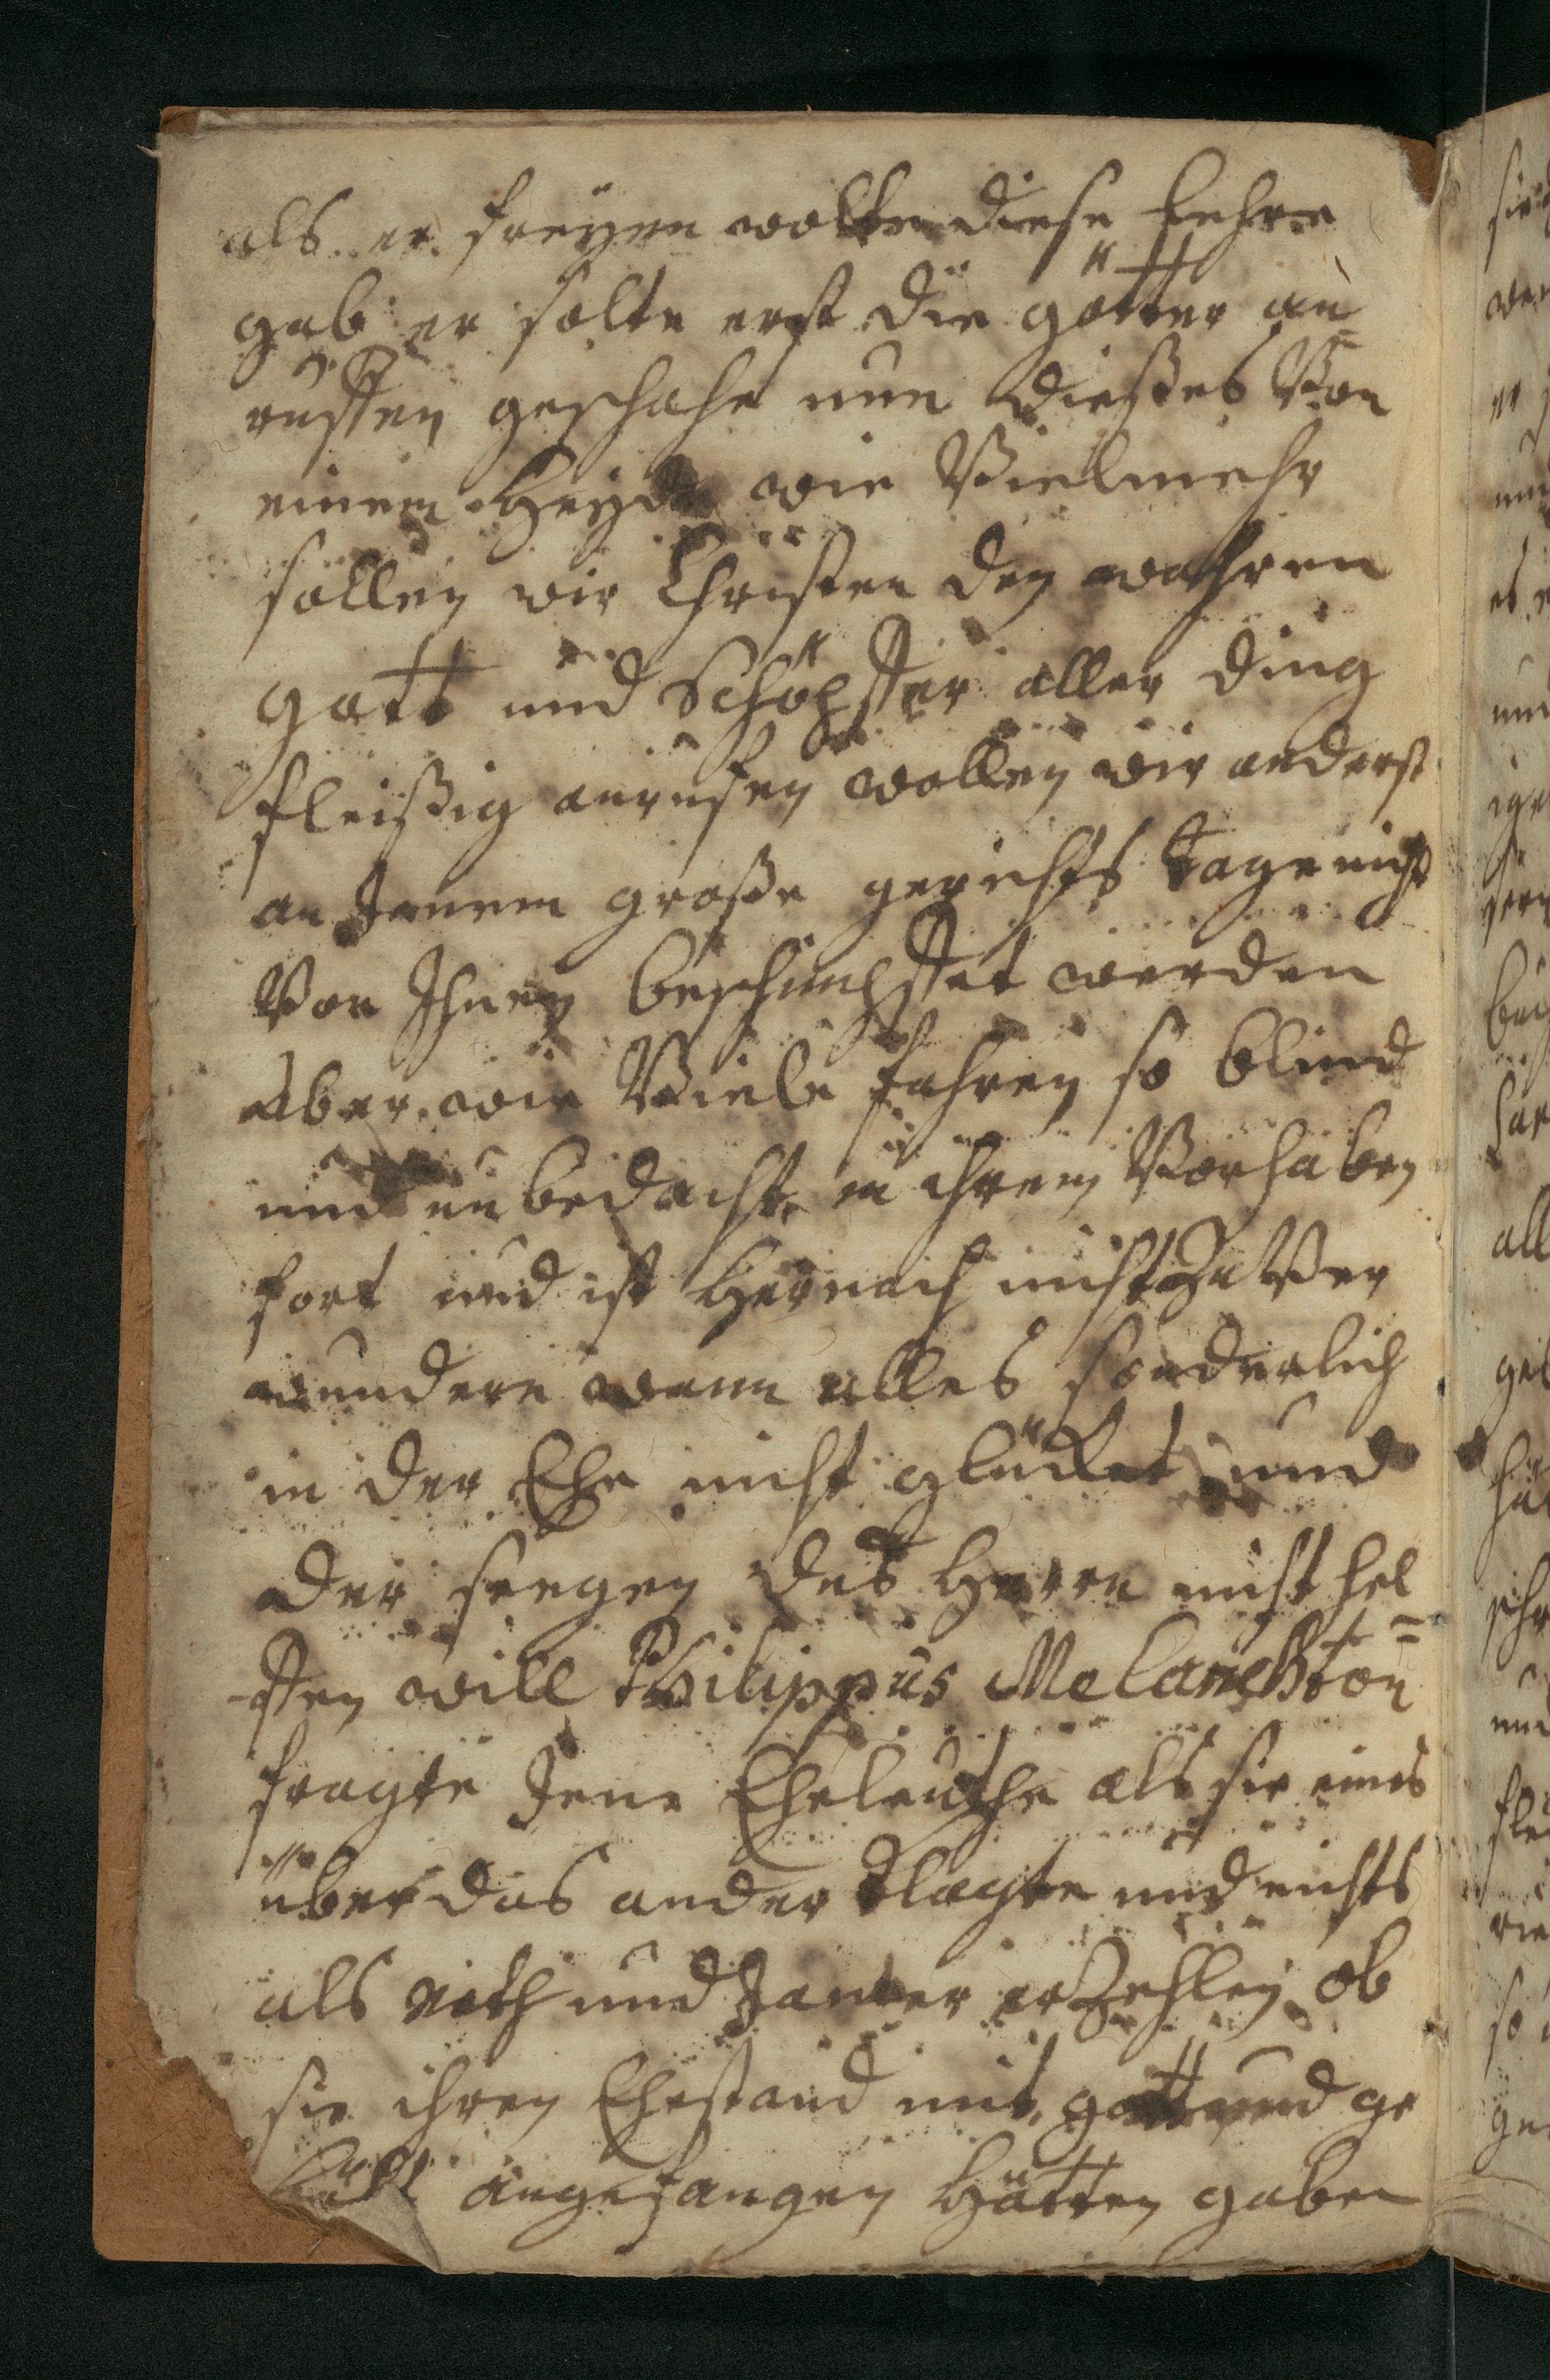 als er freyen wolte diese Lehre
gab er solte erst die götter an
ruffen geschahe nun dießes Von
einem Heyde wie Vielmehr
sollen wir Christen den wahren
gott und Schöpffer aller ding
fleißig anrufen wollen wir anderst
an Jenem große gerichts tage nicht
Von Ihnen beschimpffet werden
Aber wie Viele fahren so blind
und unbedacht in ihrem Vorhaben
fort und ist Hernach nicht zu Ver
wundern wann alles sonderlich
in der Ehe nicht glücket und
der seegen des Herrn nicht hel=
ffen will Philippus Melanchton
fragte Jene Eheleuthe als sie eins
über das ander klagte und nichts
als noth und Jamer erzehlen ob
sie ihren Ehestand mit gott und ge
angefangen Hätten gaben
sie